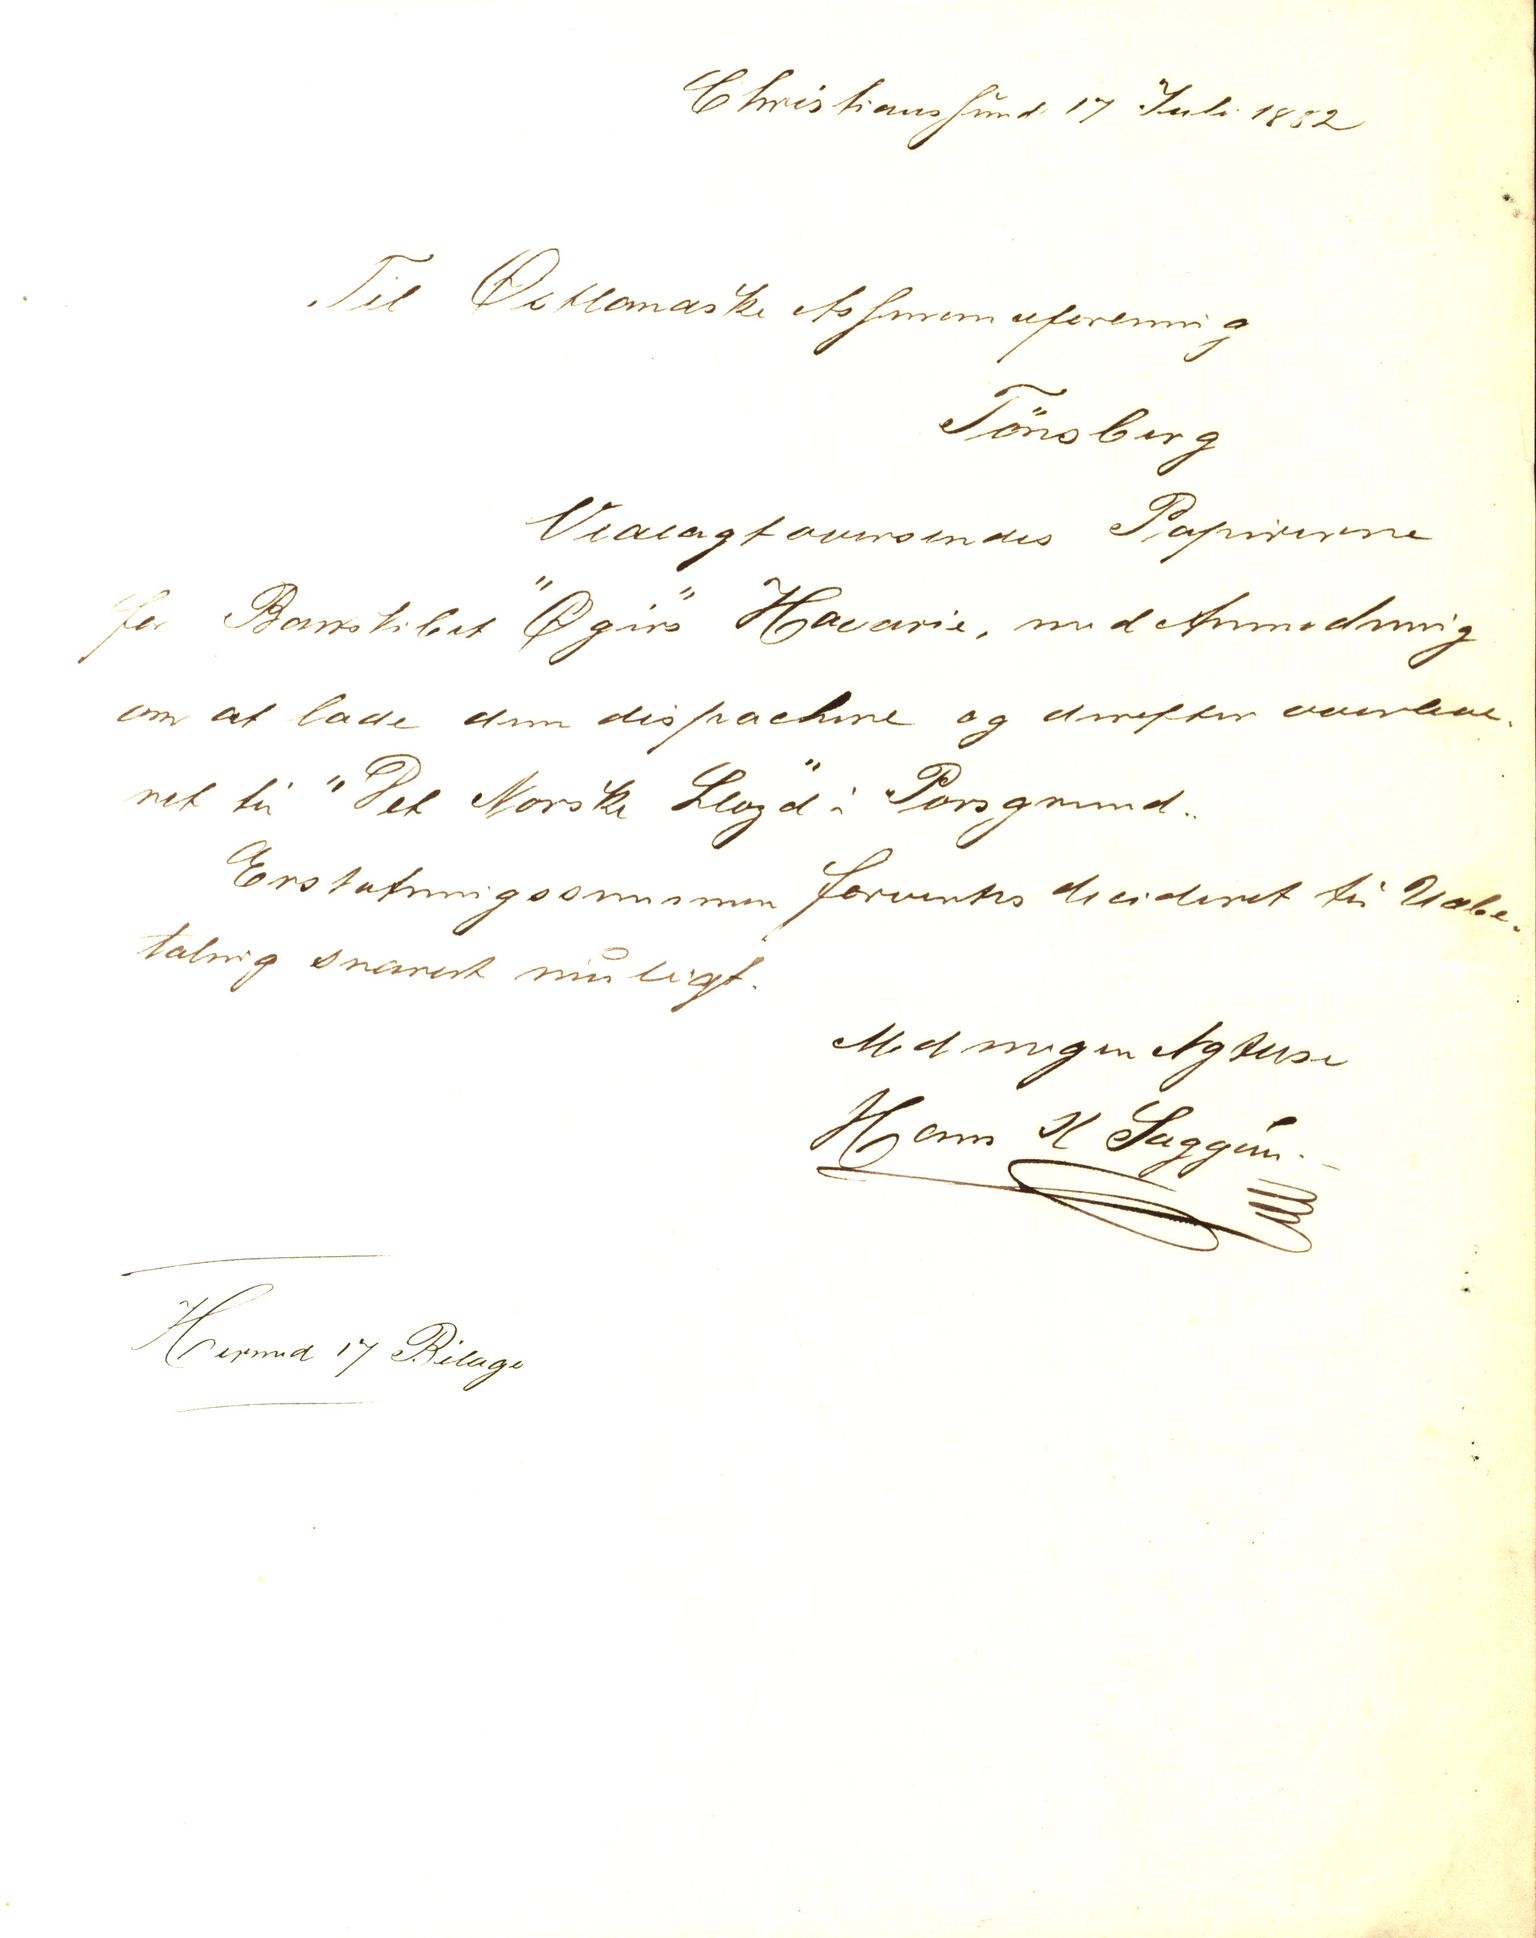 Christianssund 17 Juli 1882
Til Østlandske Assuranceforening
Tönsberg
Vedlagt oversendes Papirerne
for Barkskibet "Øgirs" Havarie, med Anmodning
om at lade dem dispachere og derefter overleve-
ret til "Det Norske Lloyd" i Porsgrund.
Erstatningssummen forventes decideret til Udbe-
taling snarest muligt.
Med megen Agtelse
Hans K
Hermed 17 Bilage